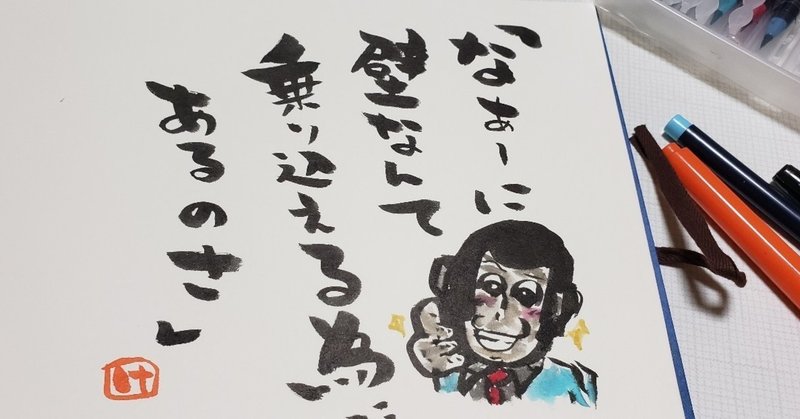 なぁーに
壁なんて
乗り込える為
あるのさ」
け